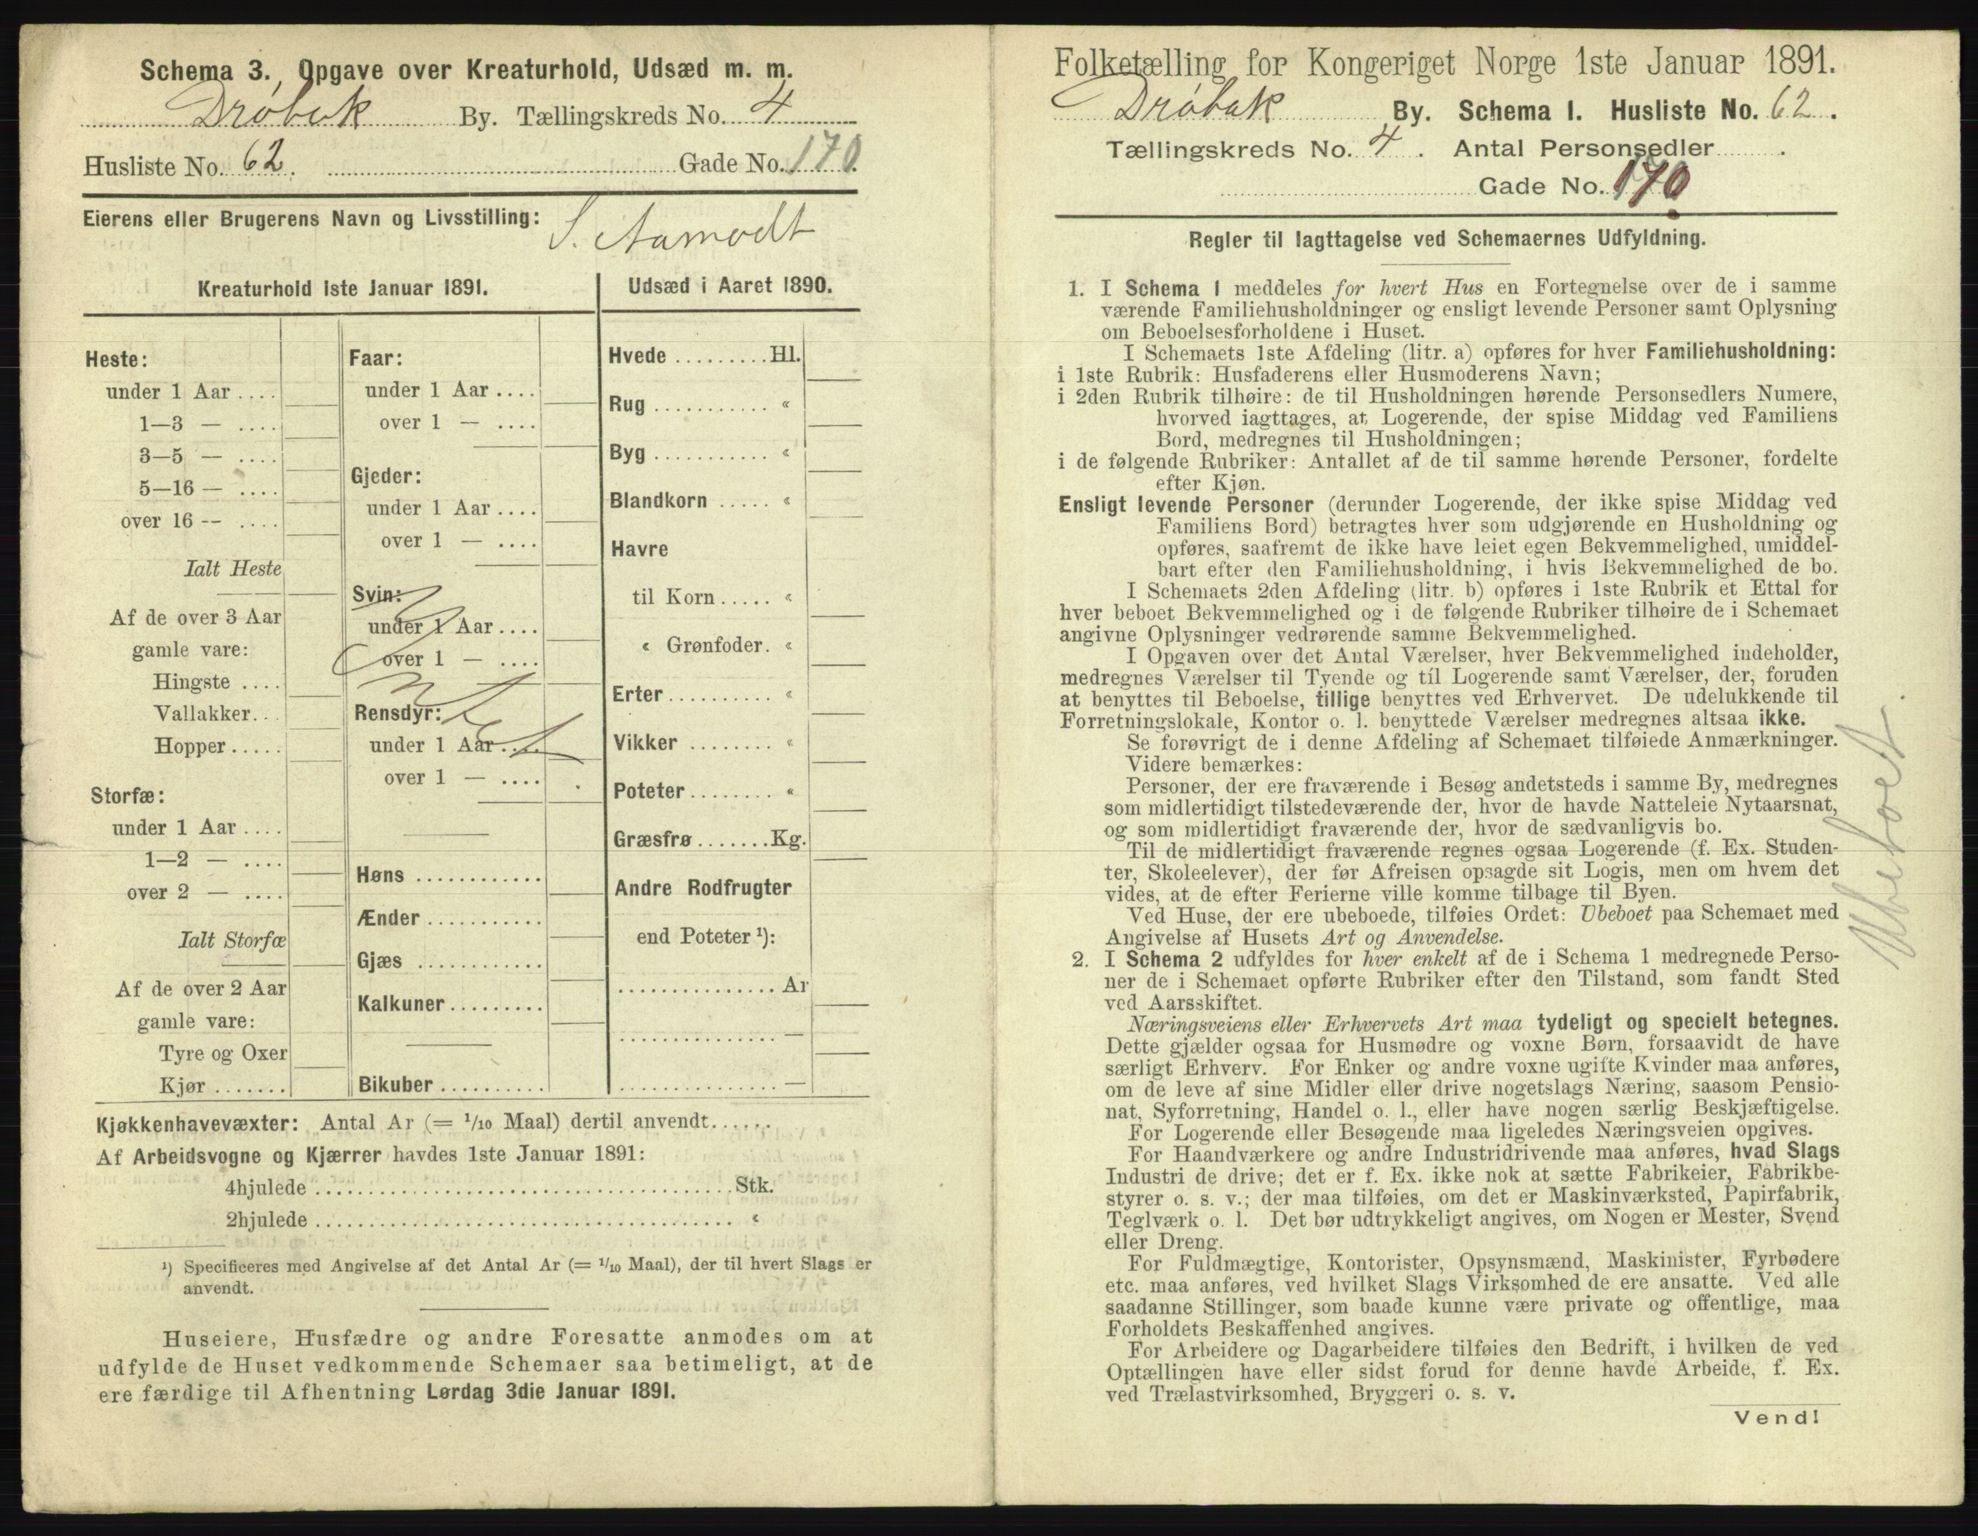 Schema 3. Opgave over Kreaturhold, Udsæd m. m.
Drøbak By. Tællingskreds No. 4
Husliste No. 62. Gade No. 170.
Eierens eller Brugerens Navn og Livsstilling:
S. Aamodt
Kreaturhold 1ste Januar 1891.
Heste:
under 1 Aar ....
1—3 — ....
3—5 — ....
5—16 — ....
over 16 -- ....
Ialt Heste
Af de over 3 Aar
gamle vare:
Hingste ....
Vallakker...
Hopper .....
Storfæ:
under 1 Aar ....
1—2 — ....
over 2 — ....
Ialt Storfæ
Af de over 2 Aar
gamle vare:
Tyre og Oxer
Kjør .......
Faar:
under 1 Aar ....
over 1 — ....
Gjeder:
under 1 Aar ....
over 1 — ....
Svin:
under 1 Aar ....
over 1 — ....
Intet
Rensdyr:
under 1 Aar ....
over 1 — ....
Høns ............
Ænder ...........
Gjæs ............
Kalkuner .........
Bikuber ..........
Udsæd i Aaret 1890.
Hvede .........Hl.
Rug ........... «
Byg ........... «
Blandkorn ..... «
Havre
til Korn ..... «
« Grønfoder. «
Erter ......... «
Vikker ........ «
Poteter ........ «
Græsfrø .......Kg.
Andre Rodfrugter
end Poteter ¹):
............... Ar
............... —
............... —
Kjøkkenhavevæxter: Antal Ar (= 1/10 Maal) dertil anvendt......
Af Arbeidsvogne og Kjærrer havdes 1ste Januar 1891:
4hjulede ........................................ Stk.
2hjulede ........................................ «
¹) Specificeres med Angivelse af det Antal Ar (= 1/10 Maal), der til hvert Slags er
anvendt.
Huseiere, Husfædre og andre Foresatte anmodes om at
udfylde de Huset vedkommende Schemaer saa betimeligt, at de
ere færdige til Afhentning Lørdag 3die Januar 1891.
Folketælling for Kongeriget Norge 1ste Januar 1891.
Drøbak By. Schema 1. Husliste No. 62.
Tællingskreds No. 4. Antal Personsedler .
Gade No. 170
Regler til Iagttagelse ved Schemaernes Udfyldning.
1. I Schema 1 meddeles for hvert Hus en Fortegnelse over de i samme
værende Familiehusholdninger og ensligt levende Personer samt Oplysning
om Beboelsesforholdene i Huset.
I Schemaets 1ste Afdeling (litr. a) opføres for hver Familiehusholdning:
i 1ste Rubrik: Husfaderens eller Husmoderens Navn;
i 2den Rubrik tilhøire: de til Husholdningen hørende Personsedlers Numere,
hvorved iagttages, at Logerende, der spise Middag ved Familiens
Bord, medregnes til Husholdningen;
i de følgende Rubriker: Antallet af de til samme hørende Personer, fordelte
efter Kjøn.
Ensligt levende Personer (derunder Logerende, der ikke spise Middag ved
Familiens Bord) betragtes hver som udgjørende en Husholdning og
opføres, saafremt de ikke have leiet egen Bekvemmelighed, umiddel-
bart efter den Familiehusholdning, i hvis Bekvemmelighed de bo.
I Schemaets 2den Afdeling (litr. b) opføres i 1ste Rubrik et Ettal for
hver beboet Bekvemmelighed og i de følgende Rubriker tilhøire de i Schemaet
angivne Oplysninger vedrørende samme Bekvemmelighed.
I Opgaven over det Antal Værelser, hver Bekvemmelighed indeholder,
medregnes Værelser til Tyende og til Logerende samt Værelser, der, foruden
at benyttes til Beboelse, tillige benyttes ved Erhvervet. De udelukkende til
Forretningslokale, Kontor o. l. benyttede Værelser medregnes altsaa ikke.
Se forøvrigt de i denne Afdeling af Schemaet tilføiede Anmærkninger.
Videre bemærkes:
Personer, der ere fraværende i Besøg andetsteds i samme By, medregnes
som midlertidigt tilstedeværende der, hvor de havde Natteleie Nytaarsnat,
og som midlertidigt fraværende der, hvor de sædvanligvis bo.
Til de midlertidigt fraværende regnes ogsaa Logerende (f. Ex. Studen-
ter, Skoleelever), der før Afreisen opsagde sit Logis, men om hvem det
vides, at de efter Ferierne ville komme tilbage til Byen.
Ved Huse, der ere ubeboede, tilføies Ordet: Ubeboet paa Schemaet med
Angivelse af Husets Art og Anvendelse.
2. I Schema 2 udfyldes for hver enkelt af de i Schema 1 medregnede Perso-
ner de i Schemaet opførte Rubriker efter den Tilstand, som fandt Sted
ved Aarsskiftet.
Næringsveiens eller Erhvervets Art maa tydeligt og specielt betegnes.
Dette gjælder ogsaa for Husmødre og voxne Børn, forsaavidt de have
særligt Erhverv. For Enker og andre voxne ugifte Kvinder maa anføres,
om de leve af sine Midler eller drive nogetslags Næring, saasom Pensio-
nat, Syforretning, Handel o. l., eller have nogen særlig Beskjæftigelse.
For Logerende eller Besøgende maa ligeledes Næringsveien opgives.
For Haandværkere og andre Industridrivende maa anføres, hvad Slags
Industri de drive; det er f. Ex. ikke nok at sætte Fabrikeier, Fabrikbe-
styrer o. s. v.; der maa tilføies, om det er Maskinværksted, Papirfabrik,
Teglværk o. l. Det bør udtrykkeligt angives, om Nogen er Mester, Svend
eller Dreng.
For Fuldmægtige, Kontorister, Opsynsmænd, Maskinister, Fyrbødere
etc. maa anføres, ved hvilket Slags Virksomhed de ere ansatte. Ved alle
saadanne Stillinger, som baade kunne være private og offentlige, maa
Forholdets Beskaffenhed angives.
For Arbeidere og Dagarbeidere tilføies den Bedrift, i hvilken de ved
Optællingen have eller sidst forud for denne havde Arbeide, f. Ex.
ved Trælastvirksomhed, Bryggeri o. s. v.
Vend!
Ubeboet